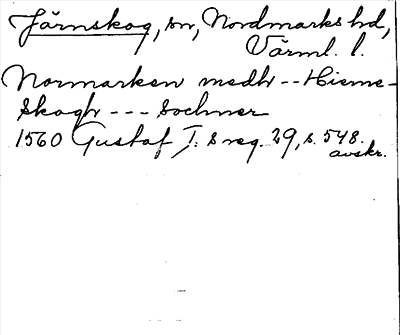 Järnskog, sn, Nordmarks hd,
Värml. l.
Normarken medh -- Hieme-
skogh --- Sochner
1560 Gustaf I:s reg. 29, s. 548.
avskr.